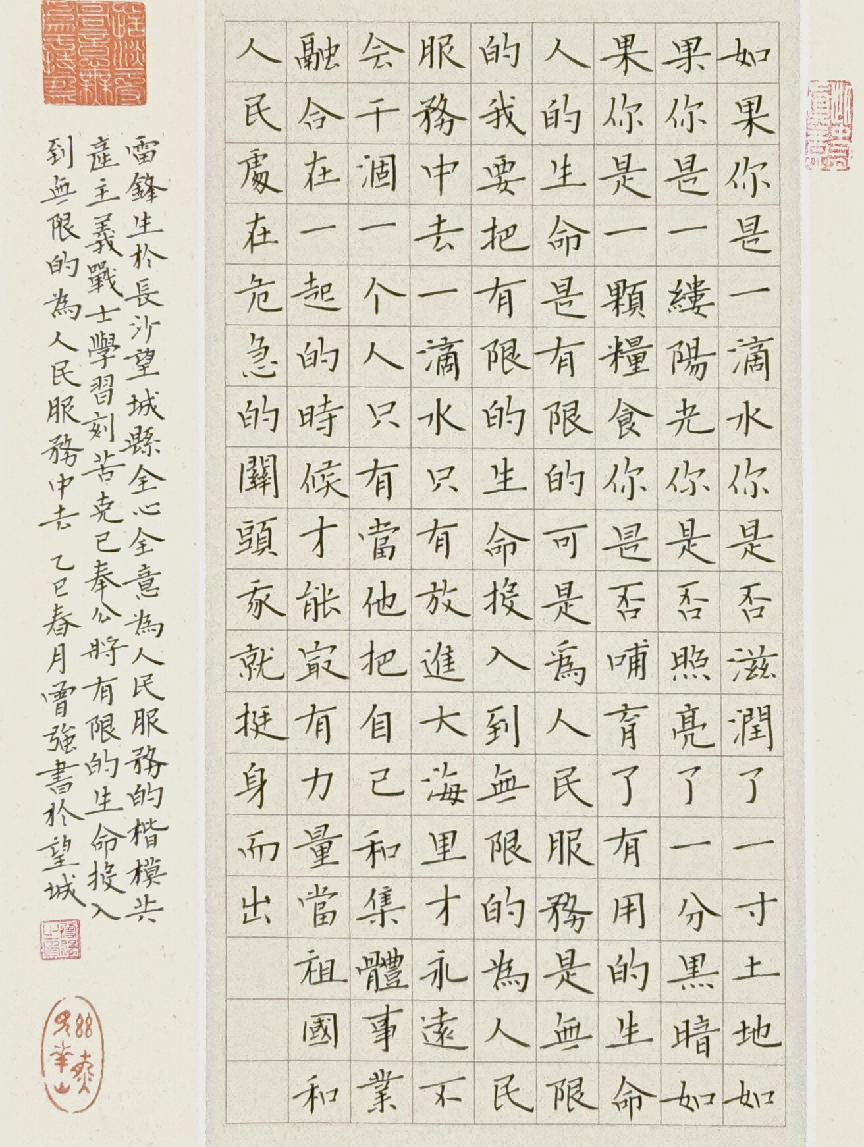 如果你是一滴水你是否滋潤了一寸土地如
果你是一縷陽光你是否照亮了一分黑暗如
果你是一顆糧食你是否哺育了有用的生命
人的生命是有限的可是爲人民服務是無限
的我要把有限的生命投入到無限的為人民
服務中去一滴水只有放進大海里才永遠不
会干涸一个人只有當他把自己和集體事業
融合在一起的時候才能最有力量當祖國和
人民處在危急的關頭我就挺身而出
雷鋒生於長沙望城縣全心全意為人民服務的楷模共
產主義戰士學習刻苦克己奉公將有限的生命投入
到無限的為人民服務中去 乙巳春月曾強書於望城